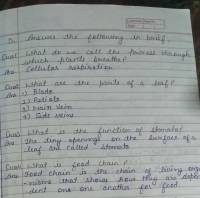 Q. Answer the following in brief.
Ques1 What do we call the process through
which plants breathe?
Ans Cellular respiration
Ques2 What are the parts of a leaf?
Ans 1) Blades
2) Petiole
3) Main Vein
4) Side veins
Ques3 What is the function of stomata?
Ans The tiny openings on the surface of a
leaf are called stomata
Ques4 What is food chain?
Ans Food chain is the chain of living orga
-nisms that shows how they are depen
dent one one another for food.